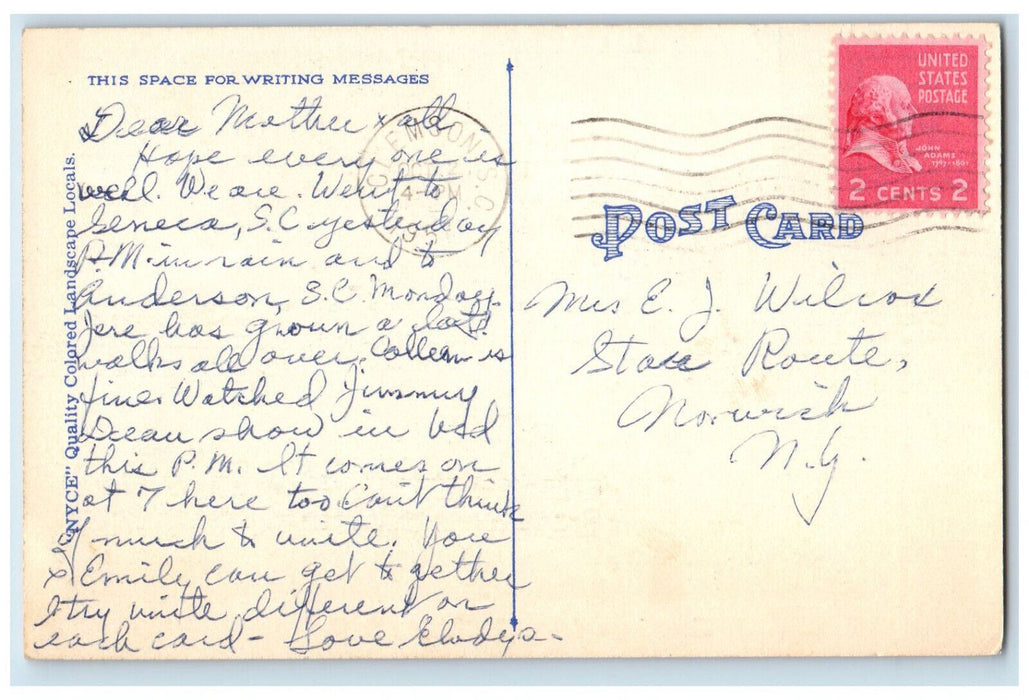 THIS SPACE FOR WRITING MESSAGES
Dear Mother & all -
Hope every one is
well. We are. Went to
Seneca, S.C. yesterday
P.M. in rain and to
Anderson, S.C. Monday.
Jere has grown a lot!
walks all over. Colleen is
fine. Watched Jimmy
Dean show in bed
this P.M. It comes on
at 7 here too. Can't think
of much to write. You
& Emily can get together
I try write different on
each card - Love Gladys -
"NYCE" Quality Colored Landscape Locals.
CLEMSON, S.C.
PM
UNITED
STATES
POSTAGE
JOHN
ADAMS
1797-1801
2 CENTS 2
POST CARD
Mrs E. J. Wilcox
State Route,
Norwich
N.Y.